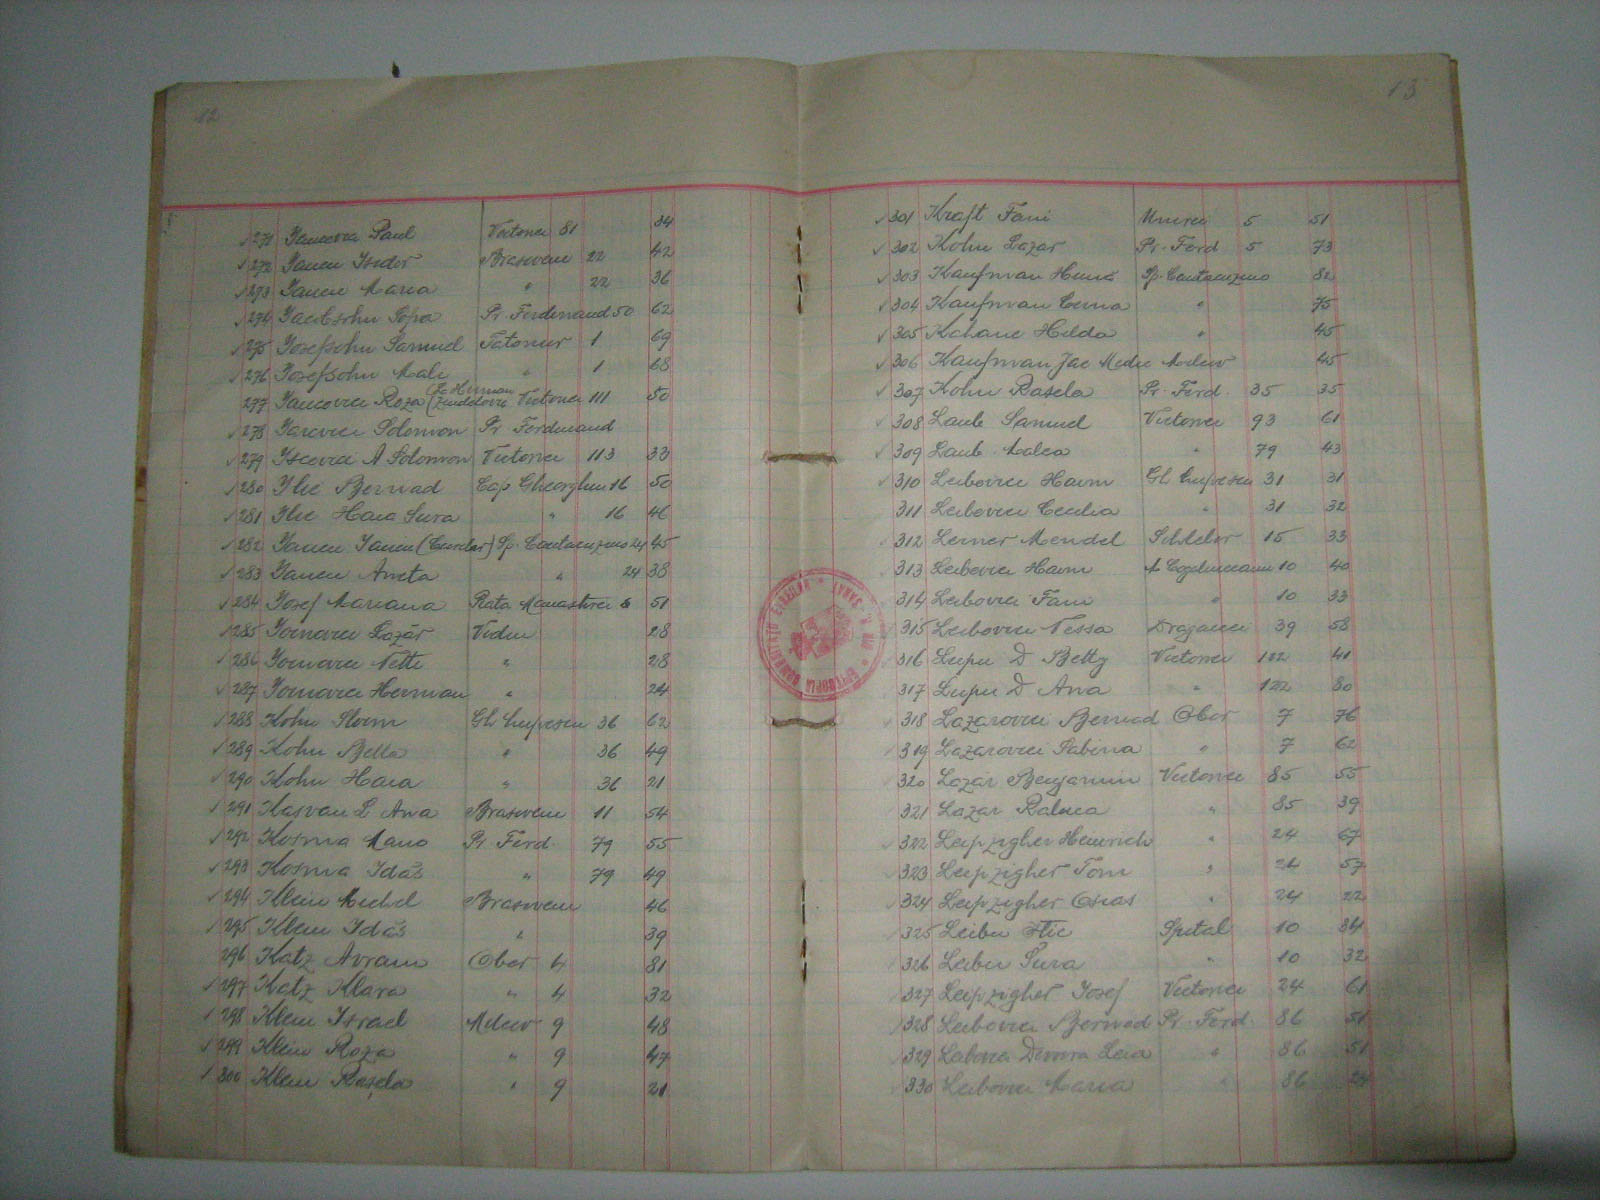 12
271 Iancovici Paul Victoriei 81 34
272 Iancu Isidor Brasoveni 22 42
273 Iancu Maria " 22 36
274 Iacobsohn Sofia Pr. Ferdinand 50 62
275 Iosefsohn Samuel Tatomir 1 69
276 Iosefsohn Mali " 1 68
277 Iancovici Roza (la Herman Zindelovici Victoriei 111 50
278 Iancovici Solomon Pr Ferdinand
279 Iscovici A Solomon Victoriei 113 33
280 Ilie Bernad Cap. Gheorghiu 16 50
281 Ilie Haia Sura " 16 46
282 Iancu Iancu (Cuselar) Sp. Cantacuzino 24 45
283 Iancu Aneta " 24 38
284 Iosef Mariana Piata Manastirei 8 51
285 Ioinovici Lazăr Vidin 28
286 Ioinovici Netti " 28
287 Ioinovici Herman " 24
288 Kohn Sloim Gh. Lupescu 36 62
289 Kohn Betta " 36 49
290 Kohn Haia " 36 21
291 Kasvan L Ana Brasoveni 11 54
292 Kosma Mano Pr. Ferd. 79 55
293 Kosma Idăs " 79 49
294 Klein Michel Brasoveni 46
295 Klein Idăs " 39
296 Katz Avram Obor 4 81
297 Katz Klara " 4 32
298 Klein Israel 9 48
299 Klein Roza " 9 47
300 Klein Rasela " 9 21
13
301 Kraft Fani Unirei 5 51
302 Kohn Lazar Pr. Ferd 5 73
303 Kaufman Hună Sp. Cantacuzino 82
304 Kaufman Cerna " 75
305 Kahane Hilda " 45
306 Kaufman Jac Medic 45
307 Kohn Rasela Pr. Ferd. 35 35
308 Laub Samuel Victoriei 93 61
309 Laub Malca " 79 43
310 Leibovici Haim Gh Lupescu 31 31
311 Leibovici Cecilia " 31 32
312 Lerner Mendel 15 33
313 Leibovici Haim M Cogalniceanu 10 40
314 Leibovici Fani " 10 33
315 Leibovici Nessa Dragaica 39 58
316 Lupu D Betty Victoriei 122 41
317 Lupu D Ana " 122 80
318 Lazarovici Bernad Obor 7 76
319 Lazarovici Sabina " 7 62
320 Lazar Benjamin Victoriei 85 55
321 Lazar Raluca " 85 39
322 Leipzigher Heinrich " 24 67
323 Leipzigher Toni " 24 57
324 Leipzigher Osias " 24 22
325 Leibu Itic Spital 10 84
326 Leibu Sura " 10 32
327 Leipzigher Iosef Victoriei 24 61
328 Leibovici Bernad Pr. Ferd. 86 51
329 Leibovici Dvoira Leia " 86 51
330 Leibovici Maria " 86 24